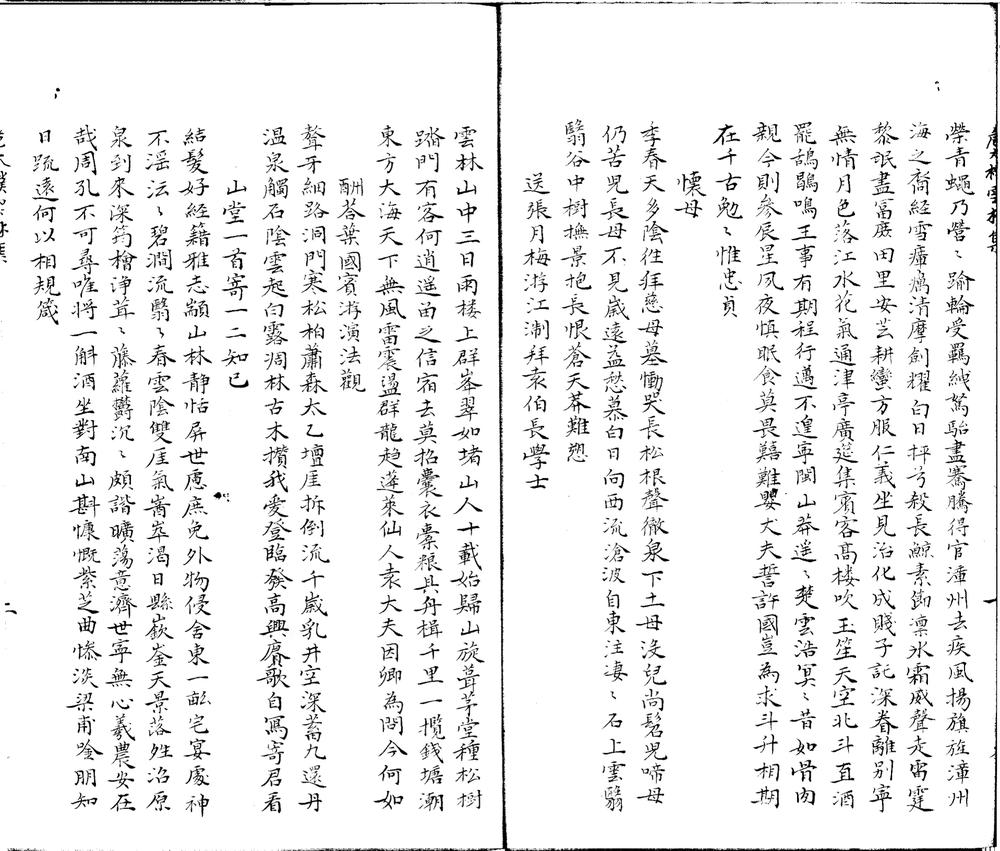 榮青蠅乃營〻踰輪受羈紲駑駘盡騫騰得官漳州去疾風揚旗旌漳州
海之裔經雪瘴癘清摩劍耀白日抨弓殺長鯨素節凛氷霜威聲走雷霆
黎氓盡富庶田里安芸耕蠻方服仁義坐見治化成賤子託深眷離别寧
無情月色落江水花氣通津亭廣筵集賓客髙樓吹玉笙天空北斗直酒
罷鵠鶤鳴王事有期程行邁不遑寧閩山莽遥〻楚雲浩冥〻昔如骨肉
親今則參辰星夙夜慎眠食莫畏囏難嬰大夫誓許國豈為求斗升相期
在千古勉〻惟忠貞
懷母
季春天多陰徃拜慈母墓慟哭長松根聲徹泉下土母沒兒尚髫兒啼母
仍苦兒長母不見歲遠益愁慕白日向西流滄波自東注凄〻石上雲翳
翳谷中樹撫景抱長恨蒼天莽難愬
送張月梅游江淛拜袁伯長學士
雲林山中三日雨楼上群峯翠如堵山人十載始歸山旋葺茅堂種松樹
踏門有客何逍遥苖之信宿去莫招囊衣橐粮具舟楫千里一攬錢塘潮
東方大海天下無風雷震盪群龍趋蓬萊仙人袁大夫因卿為問今何如
酬荅葉國賓游演法觀
聱牙細路洞門寒松柏蕭森太乙壇厓拆倒流千歲乳井空深蓄九還丹
温泉觸石陰雲起白露凋林古木攢我爱登臨發高興賡歌自寫寄君看
山堂一首寄一二知已
結髮好經籍雅志顓山林静恬屏世慮庶免外物侵舍東一畝宅宴處神
不滛泫〻碧澗流翳〻春雲陰雙厓氣崷崒渴日縣嶔崟天景落甡㳂原
泉到來深筠檜浄茸〻藤蘿欝沉〻頗諧曠蕩意濟世寧無心羲農安在
哉周孔不可尋唯将一斛酒坐對南山斟慷慨紫芝曲惨淡梁甫唫朋知
日䟽遠何以相規箴
二